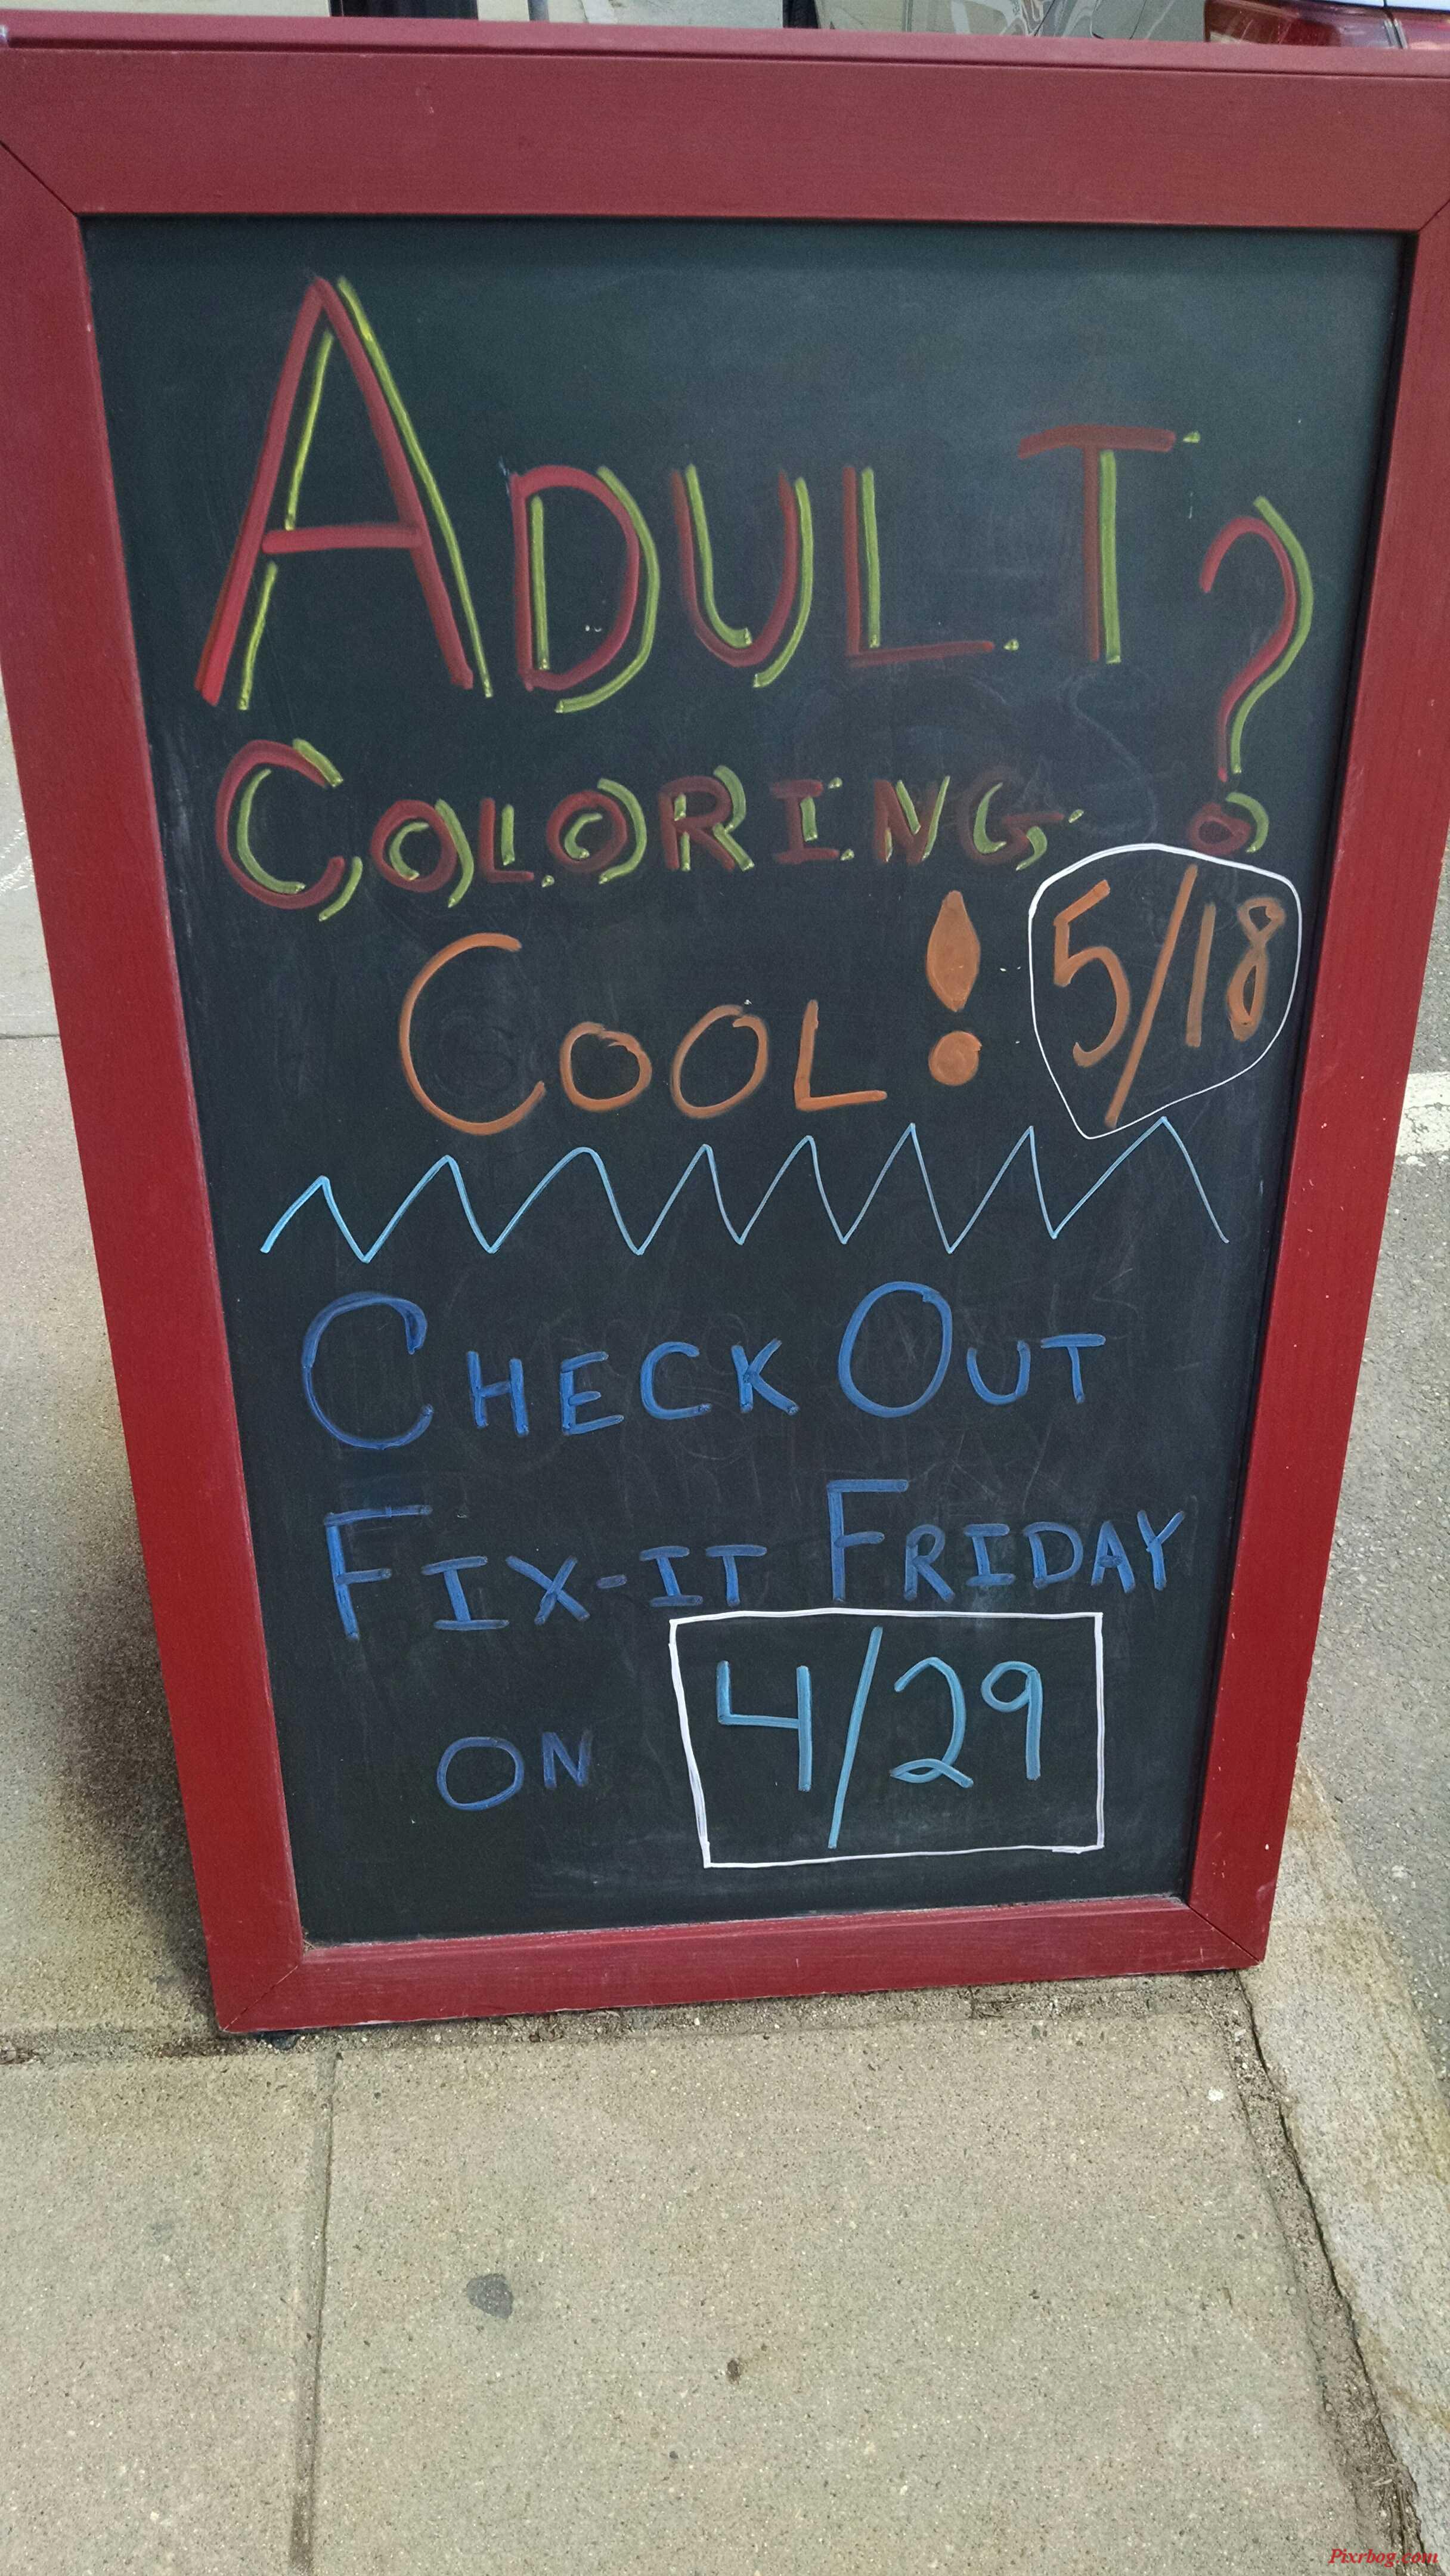 ADULT?
COLORING
COOL! 5/18
CHECK OUT
FIX-IT FRIDAY
ON 4/29
Pixrbog.com